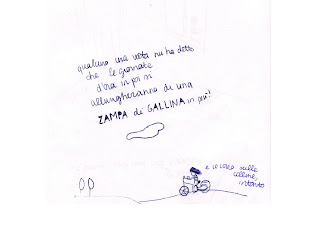 qualcuno una volta mi ha detto
che le giornate
d'ora in poi si
allungheranno di una
ZAMPA di GALLINA in più!
e io corro sulle
colline,
intanto